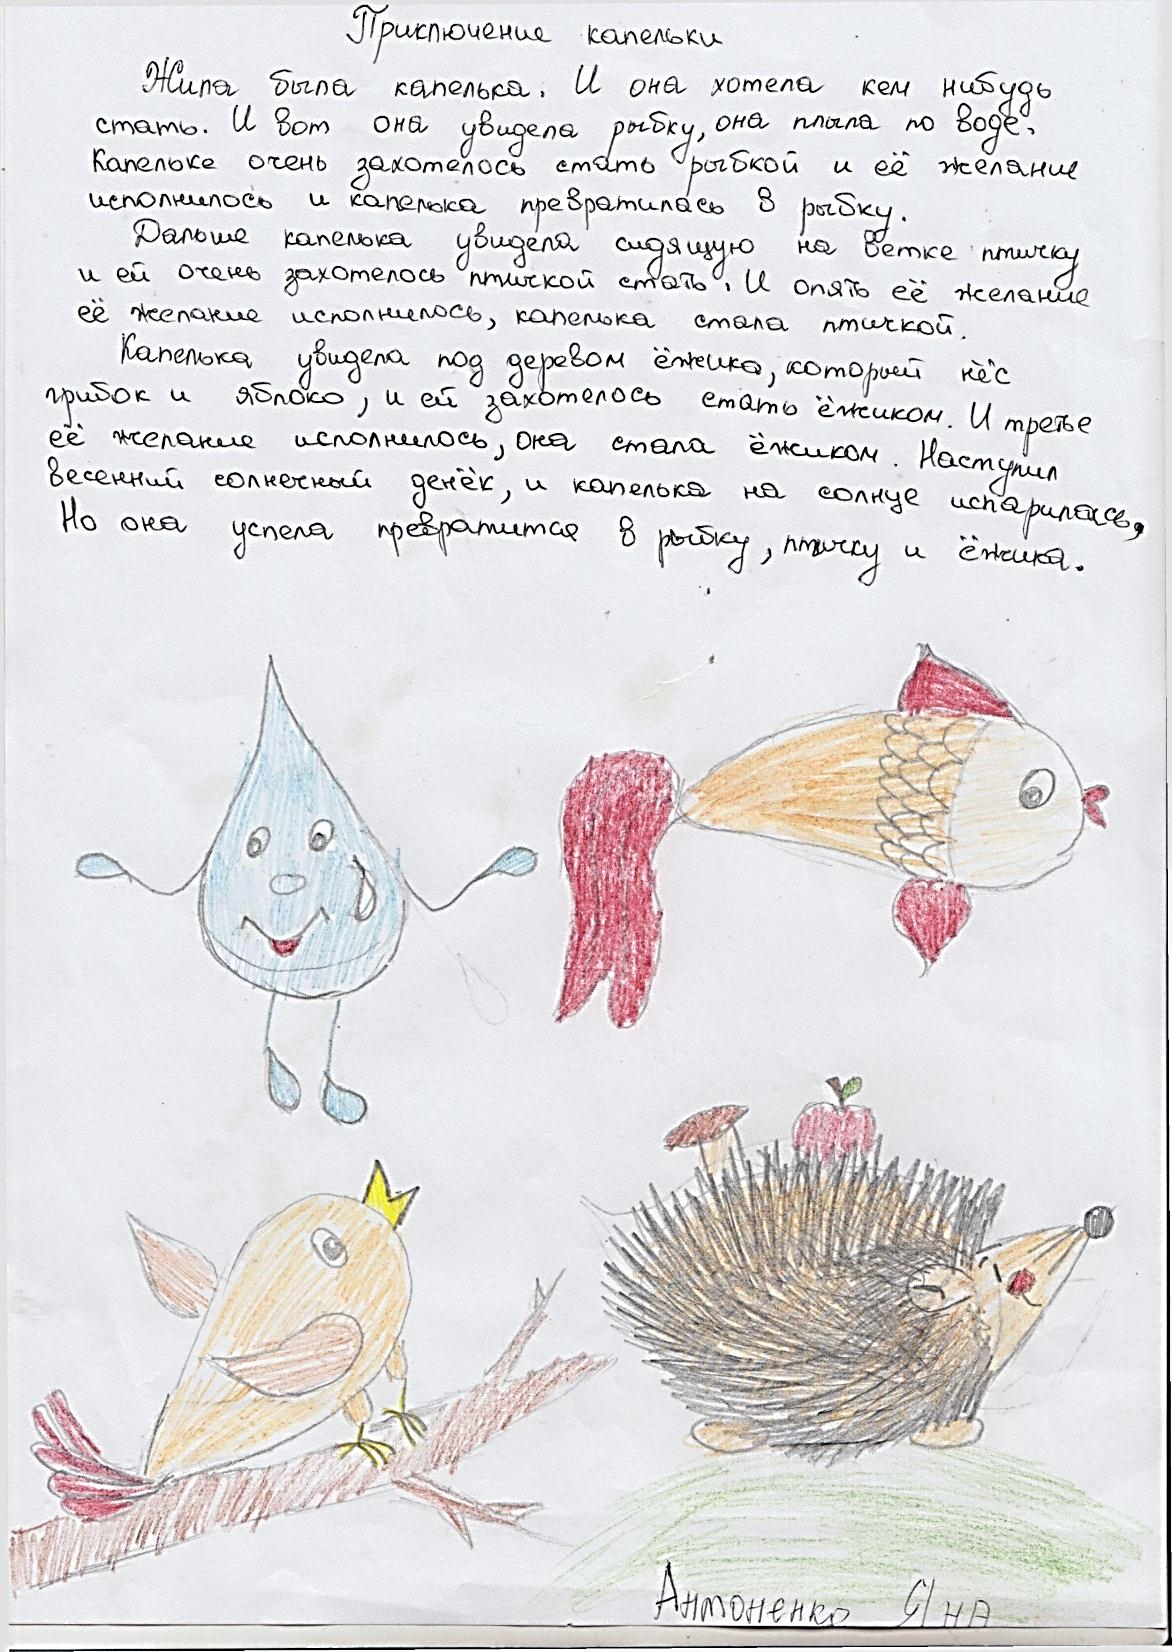 Приключение капельки
Жила была капелька. И она хотела кем нибудь
стать. И вот она увидела рыбку, она плыла по воде.
Капельке очень захотелось стать рыбкой и её желание
исполнилось и капелька превратилась в рыбку.
Дальше капелька увидела сидящую на ветке птичку
и ей очень захотелось птичкой стать. И опять её желание
её желание исполнилось, капелька стала птичкой.
Капелька увидела под деревом ёжика, который нёс
грибок и яблоко, и ей захотелось стать ёжиком. И третье
её желание исполнилось, она стала ёжиком. Наступил
весенний солнечный денёк, и капелька на солнце испарилась,
Но она успела превратится в рыбку, птичку и ёжика.
Антоненко Яна